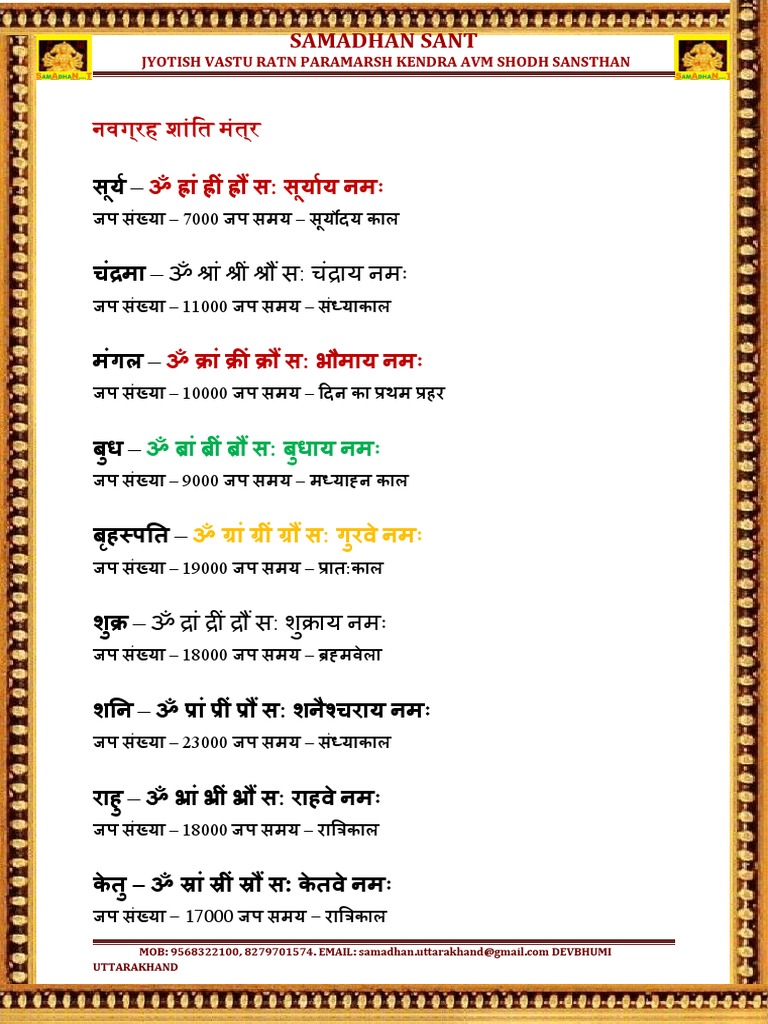 SAMADHAN SANT
JYOTISH VASTU RATN PARAMARSH KENDRA AVM SHODH SANSTHAN
SAMADHAN...T
SAMADHAN...T
नवग्रह शांति मंत्र
सूर्य – ॐ ह्रां ह्रीं ह्रौं स: सूर्याय नमः
जप संख्या – 7000 जप समय – सूर्योंदय काल
चंद्रमा – ॐ श्रां श्रीं श्रौं स: चंद्राय नमः
जप संख्या – 11000 जप समय – संध्याकाल
मंगल – ॐ क्रां क्रीं क्रौं स: भौमाय नमः
जप संख्या – 10000 जप समय – दिन का प्रथम प्रहर
बुध – ॐ ब्रां ब्रीं ब्रौं स: बुधाय नमः
जप संख्या – 9000 जप समय – मध्याह्न काल
बृहस्पति – ॐ ग्रां ग्रीं ग्रौं स: गुरवे नमः
जप संख्या – 19000 जप समय – प्रात:काल
शुक्र – ॐ द्रां द्रीं द्रौं स: शुक्राय नमः
जप संख्या – 18000 जप समय – ब्रह्मवेला
शनि – ॐ प्रां प्रीं प्रौं स: शनैश्चराय नमः
जप संख्या – 23000 जप समय – संध्याकाल
राहु – ॐ भ्रां भ्रीं भ्रौं स: राहवे नमः
जप संख्या – 18000 जप समय – रात्रिकाल
केतु – ॐ स्रां स्रीं स्रौं स: केतवे नमः
जप संख्या – 17000 जप समय – रात्रिकाल
MOB: 9568322100, 8279701574. EMAIL: samadhan.uttarakhand@gmail.com DEVBHUMI
UTTARAKHAND